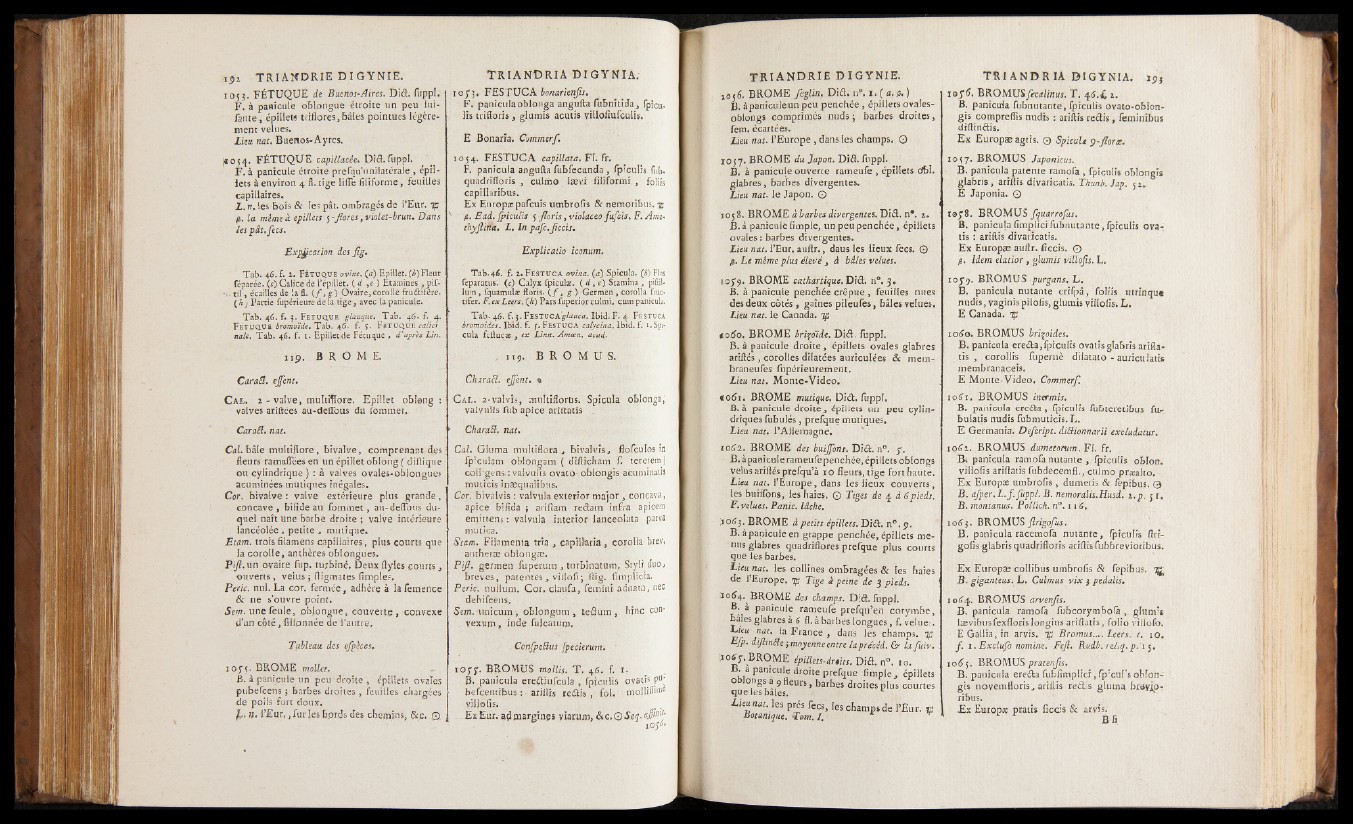 192 TRIANDRIE DIGYNIE.
1053. FÉTUQUE de Buenos-Aires. Dict. suppl.
F. à panicule oblongue étroite un peu lui-
sante, épillets triflores, bâles pointues légère-
ment velues.
Lieu nat. Buenos-Ayres.
1054. FÉTUQUE capillacée. Dict. suppl.
F. à panicule étroite presqu'unilatérale, épil-
lets à environ 4 fl. tige lisse filiforme, feuilles
capillaires.
L. n. les bois & les pât. ombragés de l'Eur. ♃
β. la même à épillets 5-flores, violet-brun. Dans
les pât. secs.
Explication des fig.
Tab. 46. f. 2. FÉTUQUE ovine. (a) Epillet. (b) Fleur
séparée. (c) Calice de l'épillet. (d, e) Etamines, pis-
til, écailles de la fl. (f, g) Ovaire, corolle fructifère.
(h) Partie supérieure de la tige, avec la panicule.
Tab. 46. f. 3. FETUQUE glauque. Tab. 46. f. 4.
FETUQUE bromoïde. Tab. 46. f. 5. FETUQUE calici-
nale. Tab. 46. f. 1. Epillet de Fétuque, d'après Lin.
119. BROME.
Caract. essent.
CAL. 2-valve, multiflore. Epillet oblong :
valves aristées au-dessous du sommet.
Caract. nat.
Cal. bâle multiflore, bivalve, comprenant des
fleurs ramassées en un épillet oblong (distique
ou cylindrique) : à valves ovales-oblongues
acuminées mutiques inégales.
Cor. bivalve : valve extérieure plus grande,
concave, bifide au sommet, au-dessous du-
quel naît une barbe droite ; valve intérieure
lancéolée, petite, mutique.
Etam. trois filamens capillaires, plus courts que
la corolle, anthères oblongues.
Pist. un ovaire sup. turbiné. Deux styles courts,
ouverts, velus ; stigmates simples.
Peric. nul. La cor. fermée, adhère à la semence
& ne s'ouvre point.
Sem. une seule, oblongue, couverte, convexe
d'un côté, sillonnée de l'autre.
Tableau des espèces.
1055. BROME mollet.
B. à panicule un peu droite, épillets ovales
pubescens ; barbes droites, feuilles chargées
de poils fort doux.
L. n. l'Eur., sur les bords des chemins, &c. ☉
TRIANDRIA DIGYNIA.
1053. FESTUCA bonariensis.
F. panicula oblonga angusta subnitida, spicu-
lis trifloris, glumis acutis villosiusculis.
E Bonaria. Commers.
1054. FESTUCA capillata. Fl. fr.
F. panicula angusta subsecunda, spiculis sub-
quadrifloris, culmo lævi filiformi, foliis
capillaribus.
Ex Europæ pascuis umbrosis & nemoribus. ♃
β. Ead. spiculis 5 floris, violaceo fuscis. F. Ame-
thystina. L. In pasc. siccis.
Explicatio iconum.
Tab. 46. f. 2. FESTUCA ovina. (a) Spicula. (b) Flos
separatus. (c) Calyx spiculæ. (d, e) Stamina, pistil-
lum, squamulæ floris. (f, g) Germen, corolla fruc-
tifer. F. ex Leers. (h) Pars superior culmi, cum panicula.
Tab. 46. f. 3. FESTUCA glauca. Ibid. F. 4. FESTUCA
bromoides. Ibid. f. 5. FESTUCA calycina. Ibid. f. 1. Spi-
cula festucæ, ex Linn. Amœn. acad.
119. BROMUS.
Charact. essent.
CAL. 2-valvis, multiflorus. Spicula oblonga,
valvulis sub apice aristatis
Charact. nat.
Cal. Gluma multiflora, bivalvis, flosculos in
spiculam oblongam (disticham s. teretem)
colligens : valvulis ovato-oblongis acuminatis
muticis inæqualibus.
Cor. bivalvis : valvula exterior major, concava,
apice bifida ; aristam rectam infra apicem
emittens : valvula interior lanceolata parva
mutica.
Stam. Filamenta tria, capillaria, corolla brev.
antheræ oblongæ.
Pist. germen superum, turbinatum, Styli duo,
breves, patentes, villosi ; stig. simplicia.
Peric. nullum. Cor. clausa, semini adnata, nec
dehiscens.
Sem. unicum, oblongum, tectum, hinc con-
vexum, inde sulcatum.
Conspectus specierum.
1055. BROMUS mollis. T. 46. f. 1.
B. panicula erectiuscula, spiculis ovatis pu-
bescentibus : aristis rectis, fol. mollissimè
villosis.
Ex Eur. ad margines viarum, &c. ☉ Seq. affinis.
1056.
TRIANDRIE DIGYNIE.
1056. BROME seglin. Dict. n°. 1. (a. β.)
B. à panicule un peu penchée, épillets ovales-
oblongs comprimés nuds ; barbes droites,
sem. écartées.
Lieu nat. l'Europe, dans les champs. ☉
1057. BROME du Japon. Dict. suppl.
B. à panicule ouverte rameuse, épillets obl.
glabres, barbes divergentes.
Lieu nat. le Japon. ☉
1058. BROME à barbes divergentes. Dict. n°. 2.
B. à panicule simple, un peu penchée, épillets
ovales : barbes divergentes.
Lieu nat. l'Eur. austr., dans les lieux secs. ☉
β. Le même plus élevé, à bâles velues.
1059. BROME cathartique. Dict. n°. 3.
B. à panicule penchée crêpue, feuilles nues
des deux côtés, gaînes pileuses, bâles velues.
Lieu nat. le Canada. ♃
1060. BROME brizoïde. Dict. suppl.
B. à panicule droite, épillets ovales glabres
aristés, corolles dilatées auriculées & mem-
braneuses supérieurement.
Lieu nat. Monte-Video.
1061. BROME mutique. Dict. suppl.
B. à panicule droite, épillets un peu cylin-
driques subulés, presque mutiques.
Lieu nat. l'Allemagne.
1062. BROME des buissons. Dict. n°. 5.
B. à panicule rameuse penchée, épillets oblongs
velus aristés presqu'à 10 fleurs, tige fort haute.
Lieu nat. l'Europe, dans les lieux couverts,
les buissons, les haies. ☉ Tiges de 4 à 6 pieds.
F. velues. Panic. lâche.
1063. BROME à petits épillets. Dict. n°. 9.
B. à panicule en grappe penchée, épillets me-
nus glabres quadriflores presque plus courts
que les barbes.
Lieu nat. les collines ombragées & les haies
de l'Europe. ♃ Tige à peine de 3 pieds.
1064. BROME des champs. Dict. suppl.
B. à panicule rameuse presqu'en corymbe,
bâles glabres à 6 fl. à barbes longues, f. velue.
Lieu nat. la France, dans les champs. ♃
Esp. distincte ; moyenne entre la précéd. & la suiv.
1065. BROME épillets-droits. Dict. n°. 10.
B. à panicule droite presque simple, épillets
oblongs à 9 fleurs, barbes droites plus courtes
que les bâles.
Lieu nat. les prés secs, les champs de l'Eur. ♃
Botanique. Tom. I.
TRIANDRIA DIGYNIA. 193
1056. BROMUS secalinus. T. 46. f. 2.
B. panicula subnutante, spiculis ovato-oblon-
gis compressis nudis : aristis rectis, seminibus
distinctis.
Ex Europæ agris. ☉ Spiculæ 9-floræ.
1057. BROMUS Japonicus.
B. panicula patente ramosa, spiculis oblongis
glabris, aristis divaricatis. Thunb. Jap. 52.
E Japonia. ☉
1058. BROMUS squarrosus.
B. panicula simplici subnutante, spiculis ova-
tis : aristis divaricatis.
Ex Europæ austr. siccis. ☉
β. idem elatior, glumis villosis. L.
1059. BROMUS purgans. L.
B. panicula nutante crispâ, foliis utrinque
nudis, vaginis pilosis, glumis villosis. L.
E Canada. ♃
1060. BROMUS brizoides.
B. panicula erecta, spiculis ovatis glabris arista-
tis, corollis supernè dilatato-auriculatis
membranaceis.
E Monte-Video. Commers.
1061. BROMUS inermis.
B. panicula erecta, spiculis subteretibus su-
bulatis nudis submuticis. L.
E Germania. Descript. dictionnarii excludatur.
1062. BROMUS dumetorum. Fl. fr.
B. panicula ramosa nutante, spiculis oblon.
villosis aristatis subdecemfl., culmo præalto.
Ex Europæ umbrosis, dumetis & sepibus. ☉
B. asper. L. f. suppl. B. nemoralis. Huds. 2. p. 51.
B. montanus. Pollich. n°. 116.
1063. BROMUS strigosus.
B. panicula racemosa nutante, spiculis stri-
gosis glabris quadrifloris aristis subbrevioribus.
Ex Europæ collibus umbrosis & sepibus. ♃
B. giganteus. L. Culmus vix 3 pedalis.
1064. BROMUS arvensis.
B. panicula ramosa subcorymbosa, glum's
lævibus sexfloris longius aristatis, folio villoso.
E Gallia, in arvis. ♃ Bromus.... Leers. t. 10.
f. 1. Excluso nomine. Fest. Rudb. reliq. p. 15.
1065. BROMUS pratensis.
B. panicula erecta subsimplici, spiculis oblon-
gis novemfloris, aristis rectis gluma brevio-
ribus.
Ex Europæ pratis siccis & arvis.
B b